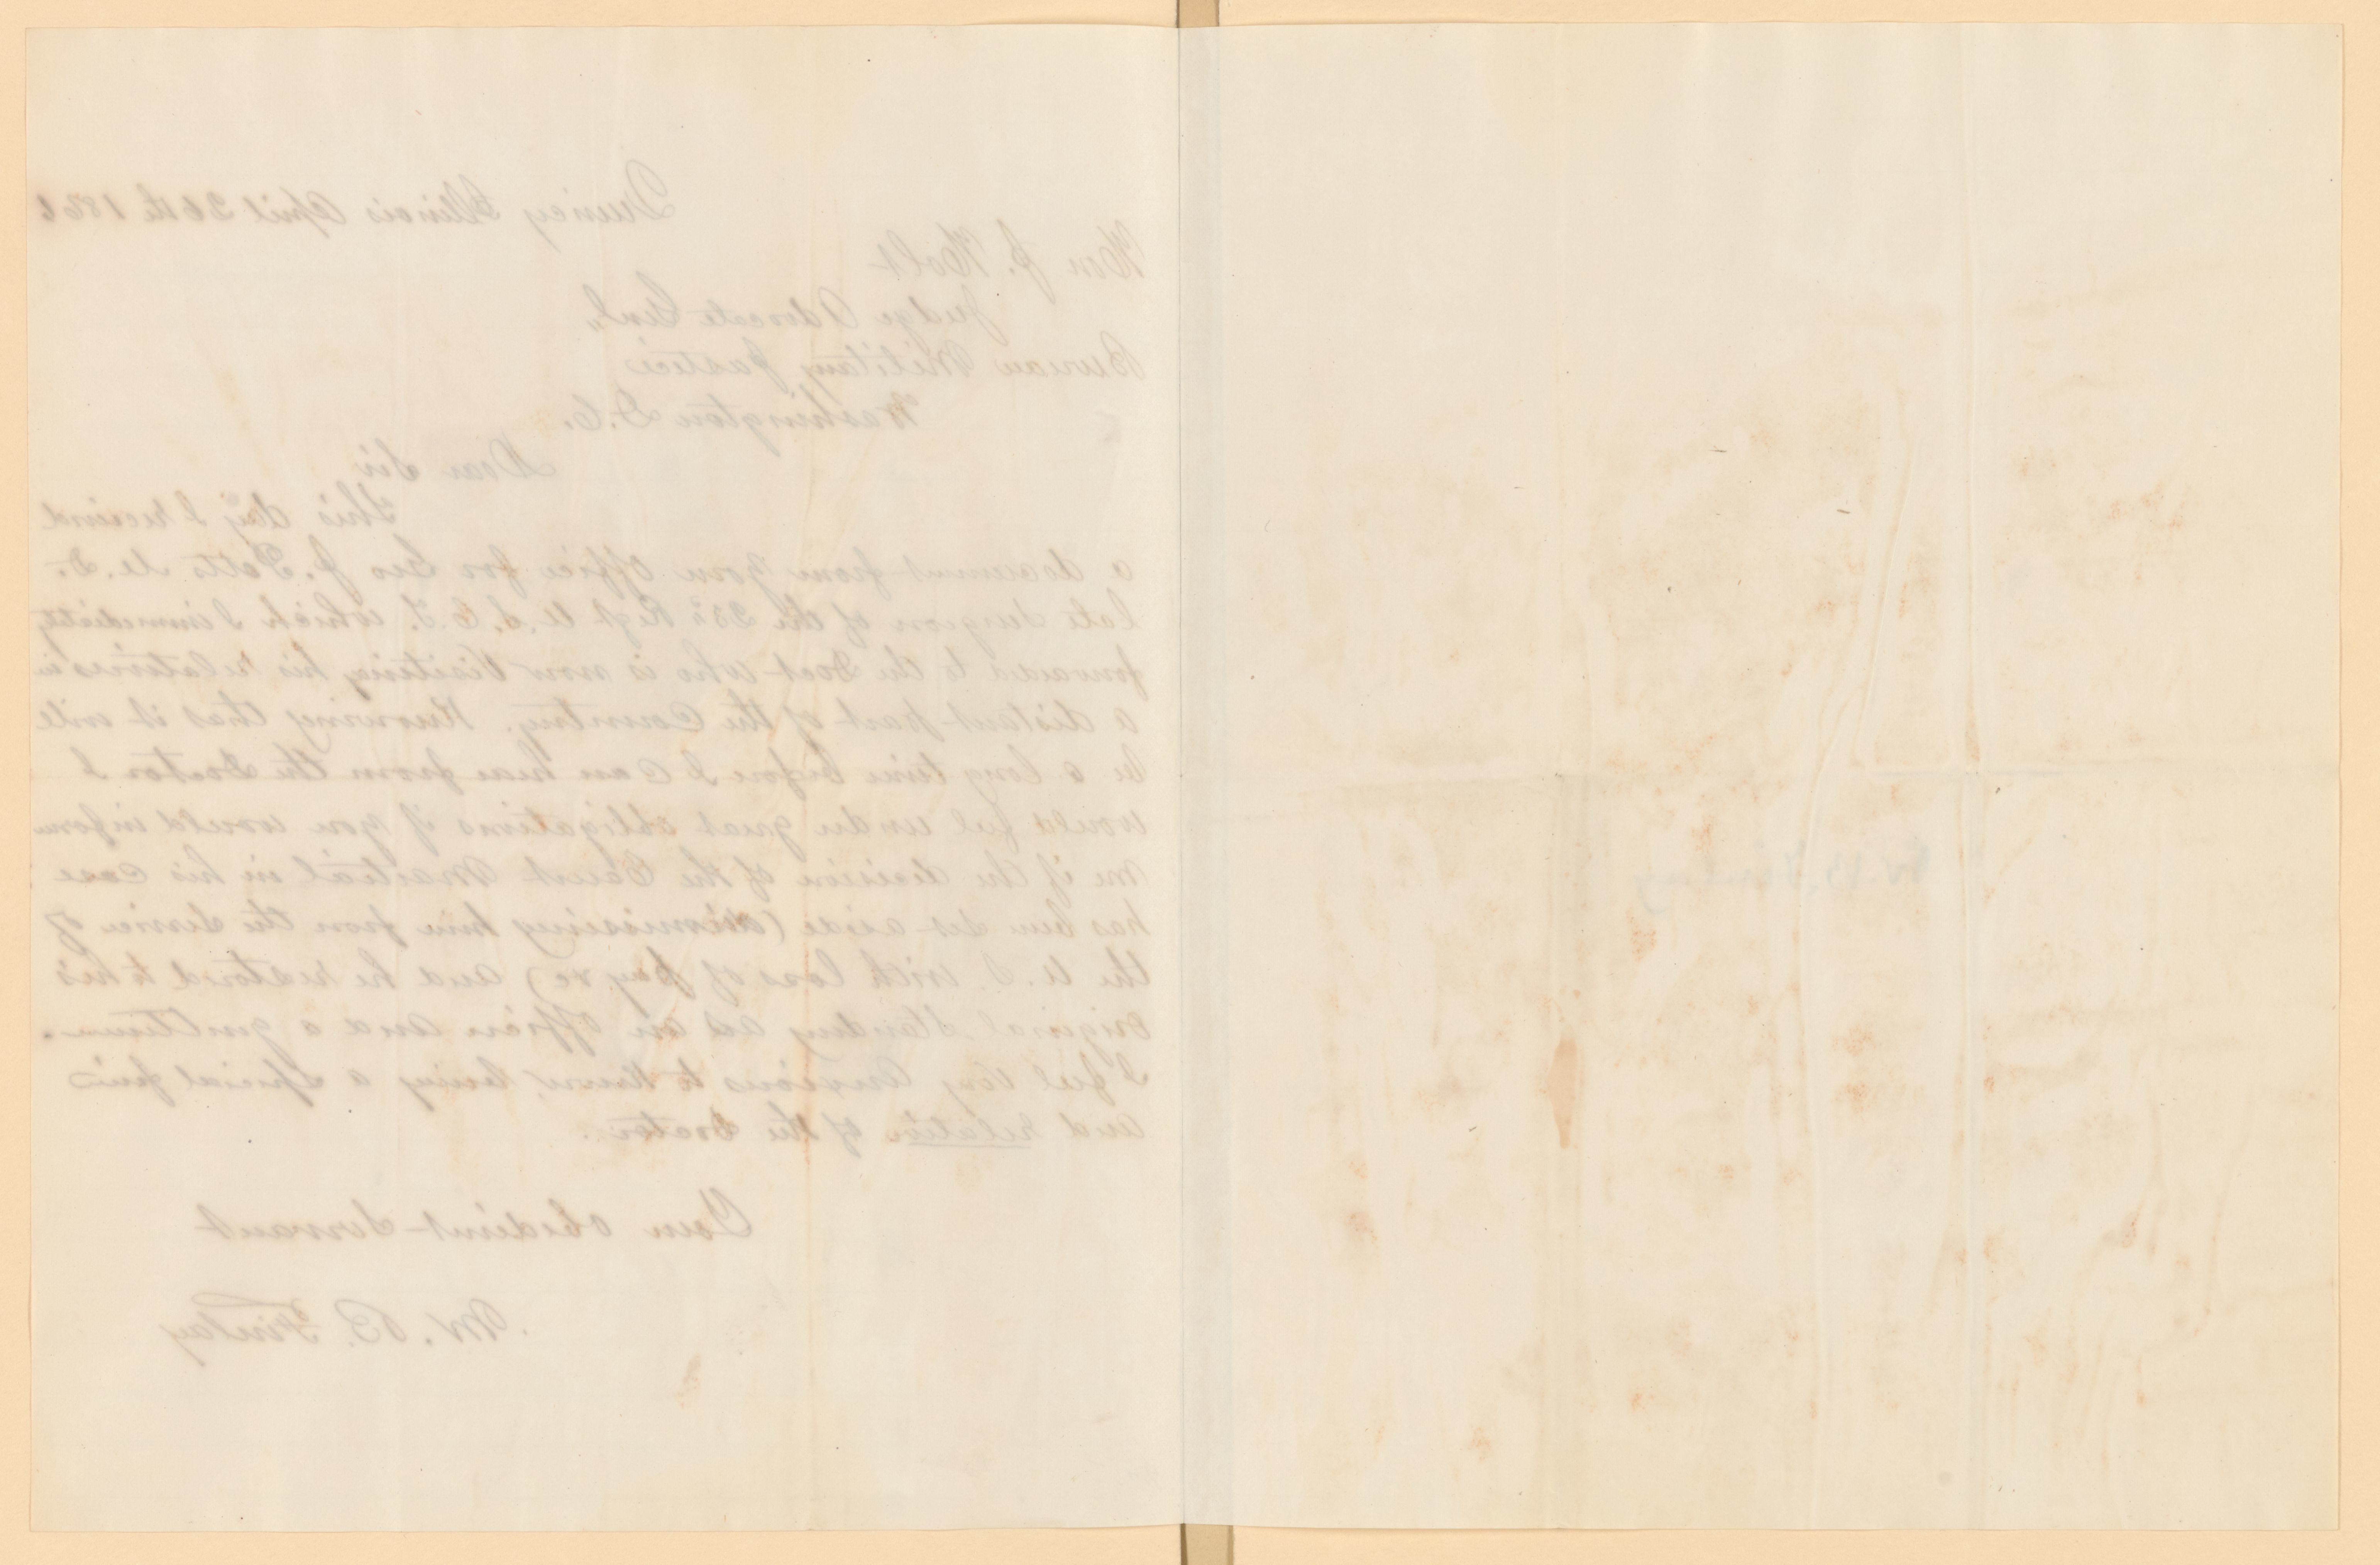 Quincy Illinois April 26th 186
Hon J. Holt
Judge Advocate Genl,,
Bureau Military Justice
Washington D.C.
Dear Sir
This day I received
a document from your office for Geo J. Potts M.D.
late Surgeon of the 23d Regt U.S.C.T. which I immediately
forwarded to the Doct who is now Visiting his relatives in
a distant part of the Country. Knowing that it will
be a long time before I can hear from the Doctor I
would feel under great obligations if you would inform
me if the decision of the Court Martial in his case
has been set aside (dismissing him from the Service of
the U.S. with loss of pay &c) and he restored to his
Original Standing as an officer and a gentleman.
I feel Very Anxious to Know, being a Special friend
and relative of the Doctor.
Your obedient Servant
W. B. Finlay
W. B. Finlay